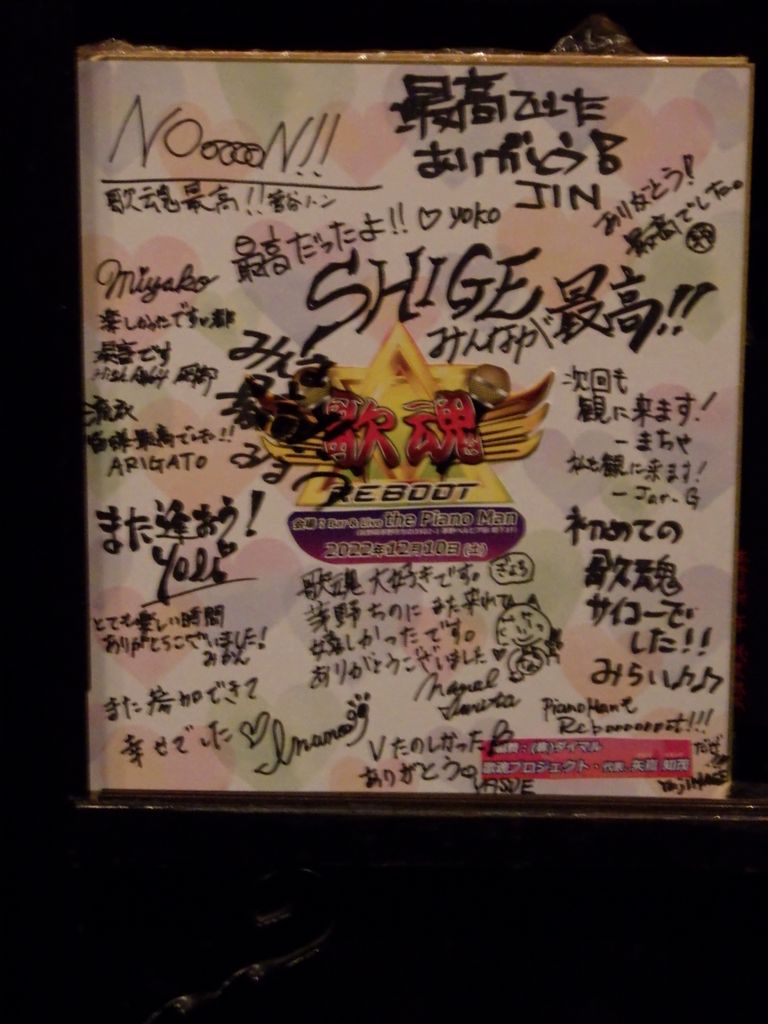 NOooooN!!
歌魂最高!!
最高でした
ありがとう!
JIN
ありがとう!
最高でした。
最高だったよ!! ♡ yoko
Miyako
楽しかったです
最高です
SHIGE
みんなが最高!!
みんな
最高
歌魂
REBOOT
会場:Bar & Live the Piano Man
2022年12月10日(土)
皆様最高でした!!
ARIGATO
次回も
観に来ます!
ーまちゃ
私も観に来ます!
ーJan-G
また逢おう!
初めての
歌魂
サイコーで
した!!
みらい♪♪
歌魂大好きです。
茅野ちのにまた来れて
嬉しかったです。
ありがとうございました♡
とても楽しい時間
ありがとうございました!
また参加できて
幸せでした♡
Vたのしかった
ありがとう
Piano Man
協賛:(株)ダイマル
歌魂プロジェクト・代表